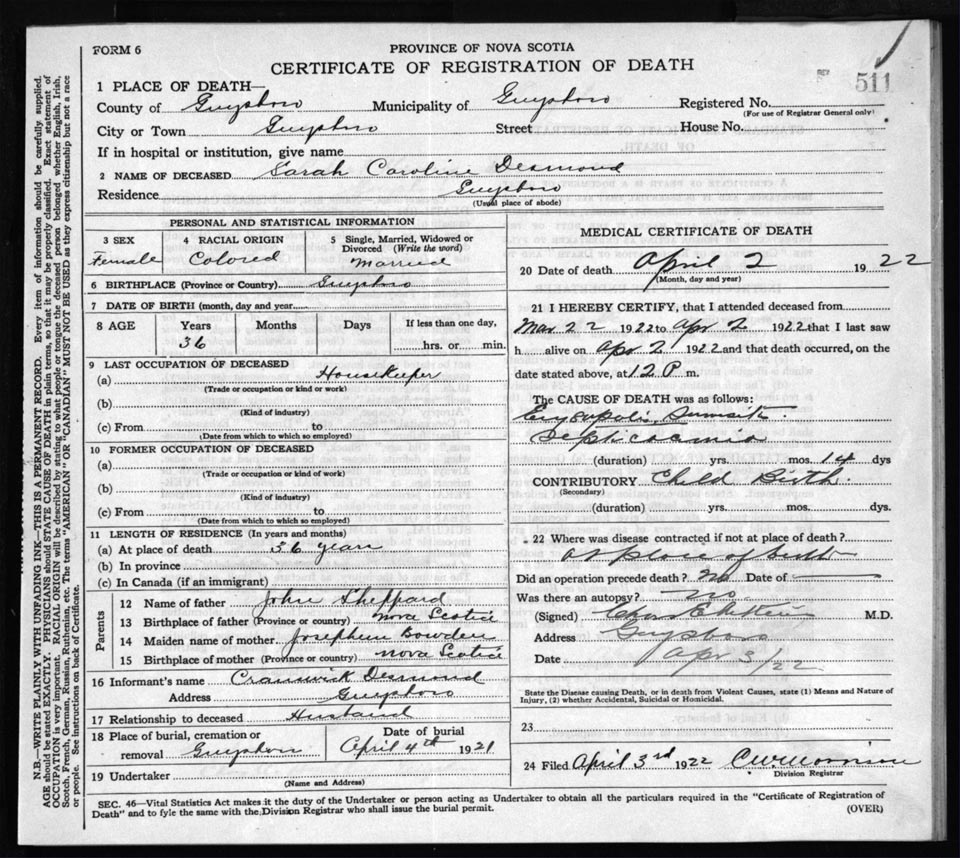 FORM 6
PROVINCE OF NOVA SCOTIA
CERTIFICATE OF REGISTRATION OF DEATH
511
1 PLACE OF DEATH—
County of Guysboro Municipality of Guysboro Registered No.
(For use of Registrar General only)
City or Town Guysboro Street House No.
If in hospital or institution, give name
2 NAME OF DECEASED Sarah Caroline Desmond
Residence Guysboro
(Usual place of abode)
PERSONAL AND STATISTICAL INFORMATION
3 SEX 4 RACIAL ORIGIN 5 Single, Married, Widowed or Divorced (Write the word)
Female Colored Married
6 BIRTHPLACE (Province or Country) Guysboro
7 DATE OF BIRTH (month, day and year)
8 AGE Years Months Days If less than one day,
36 hrs. or min.
9 LAST OCCUPATION OF DECEASED
(a) Housekeeper
(Trade or occupation or kind or work)
(b)
(Kind of industry)
(c) From to
(Date from which to which so employed)
10 FORMER OCCUPATION OF DECEASED
(a)
(Trade or occupation or kind of work)
(b)
(Kind of industry)
(c) From to
(Date from which to which so employed)
11 LENGTH OF RESIDENCE (In years and months)
(a) At place of death 36 years
(b) In province
(c) In Canada (if an immigrant)
Parents
12 Name of father John Sheppard
13 Birthplace of father (Province or country) Nova Scotia
14 Maiden name of mother Bowden
15 Birthplace of mother (Province or country) Nova Scotia
16 Informant's name Desmond
Address Guysboro
17 Relationship to deceased Husband
18 Place of burial, cremation or removal Guysboro Date of burial April 4th 1921
19 Undertaker
(Name and Address)
MEDICAL CERTIFICATE OF DEATH
20 Date of death April 2 19 22
(Month, day and year)
21 I HEREBY CERTIFY, that I attended deceased from
Mar 22 1922 to Apr 2 1922 that I last saw
h alive on Apr 2 1922 and that death occurred, on the
date stated above, at 12 P m.
The CAUSE OF DEATH was as follows:
Septicaemia
(duration) yrs. mos. 14 dys
CONTRIBUTORY Child Birth.
(Secondary)
(duration) yrs. mos. dys.
22 Where was disease contracted if not at place of death?
at place of death
Did an operation precede death? No Date of
Was there an autopsy? No
(Signed) M.D.
Address Guysboro
Date Apr 3/22
State the Disease causing Death, or in death from Violent Causes, state (1) Means and Nature of
Injury, (2) whether Accidental, Suicidal or Homicidal.
23
24 Filed April 3rd 1922
Division Registrar
SEC. 46—Vital Statistics Act makes it the duty of the Undertaker or person acting as Undertaker to obtain all the particulars required in the "Certificate of Registration of
Death" and to fyle the same with the Division Registrar who shall issue the burial permit. (OVER)
N.B.—WRITE PLAINLY WITH UNFADING INK—THIS IS A PERMANENT RECORD. Every item of information should be carefully supplied.
AGE should be stated EXACTLY. PHYSICIANS should STATE CAUSE OF DEATH in plain terms, so that it may be properly classified. Exact statement of
OCCUPATION is very important. RACIAL ORIGIN will be described by stating to what people or tongue the deceased person belonged whether English, Irish,
Scotch, French, German, Russian, Ruthenian, etc. The terms "AMERICAN" OR "CANADIAN" MUST NOT BE USED as they express citizenship but not a race
or people. See instructions on back of Certificate.